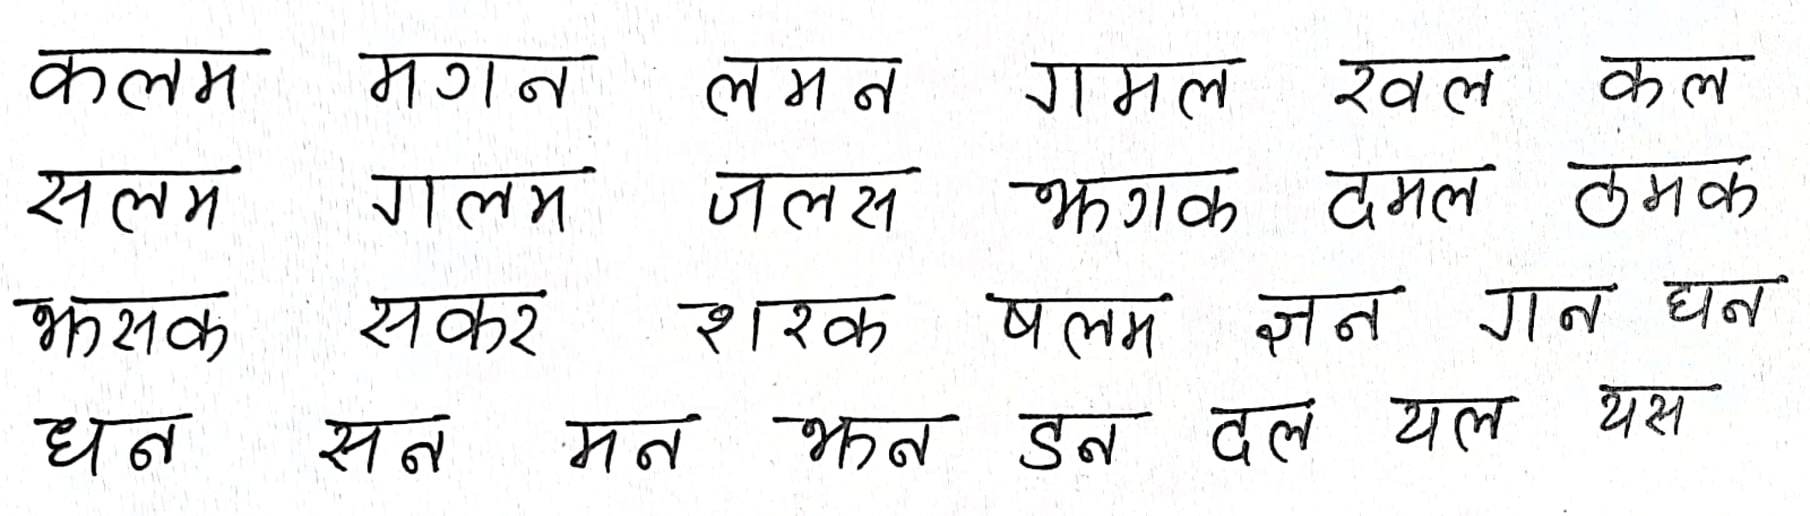 कलम मगन लमन गमल खल कल
सलम गलम जलस झगक दमल ठमक
झसक सकर शरक षलम ज्ञन गन घन
धन सन मन झन डन दल यल यस